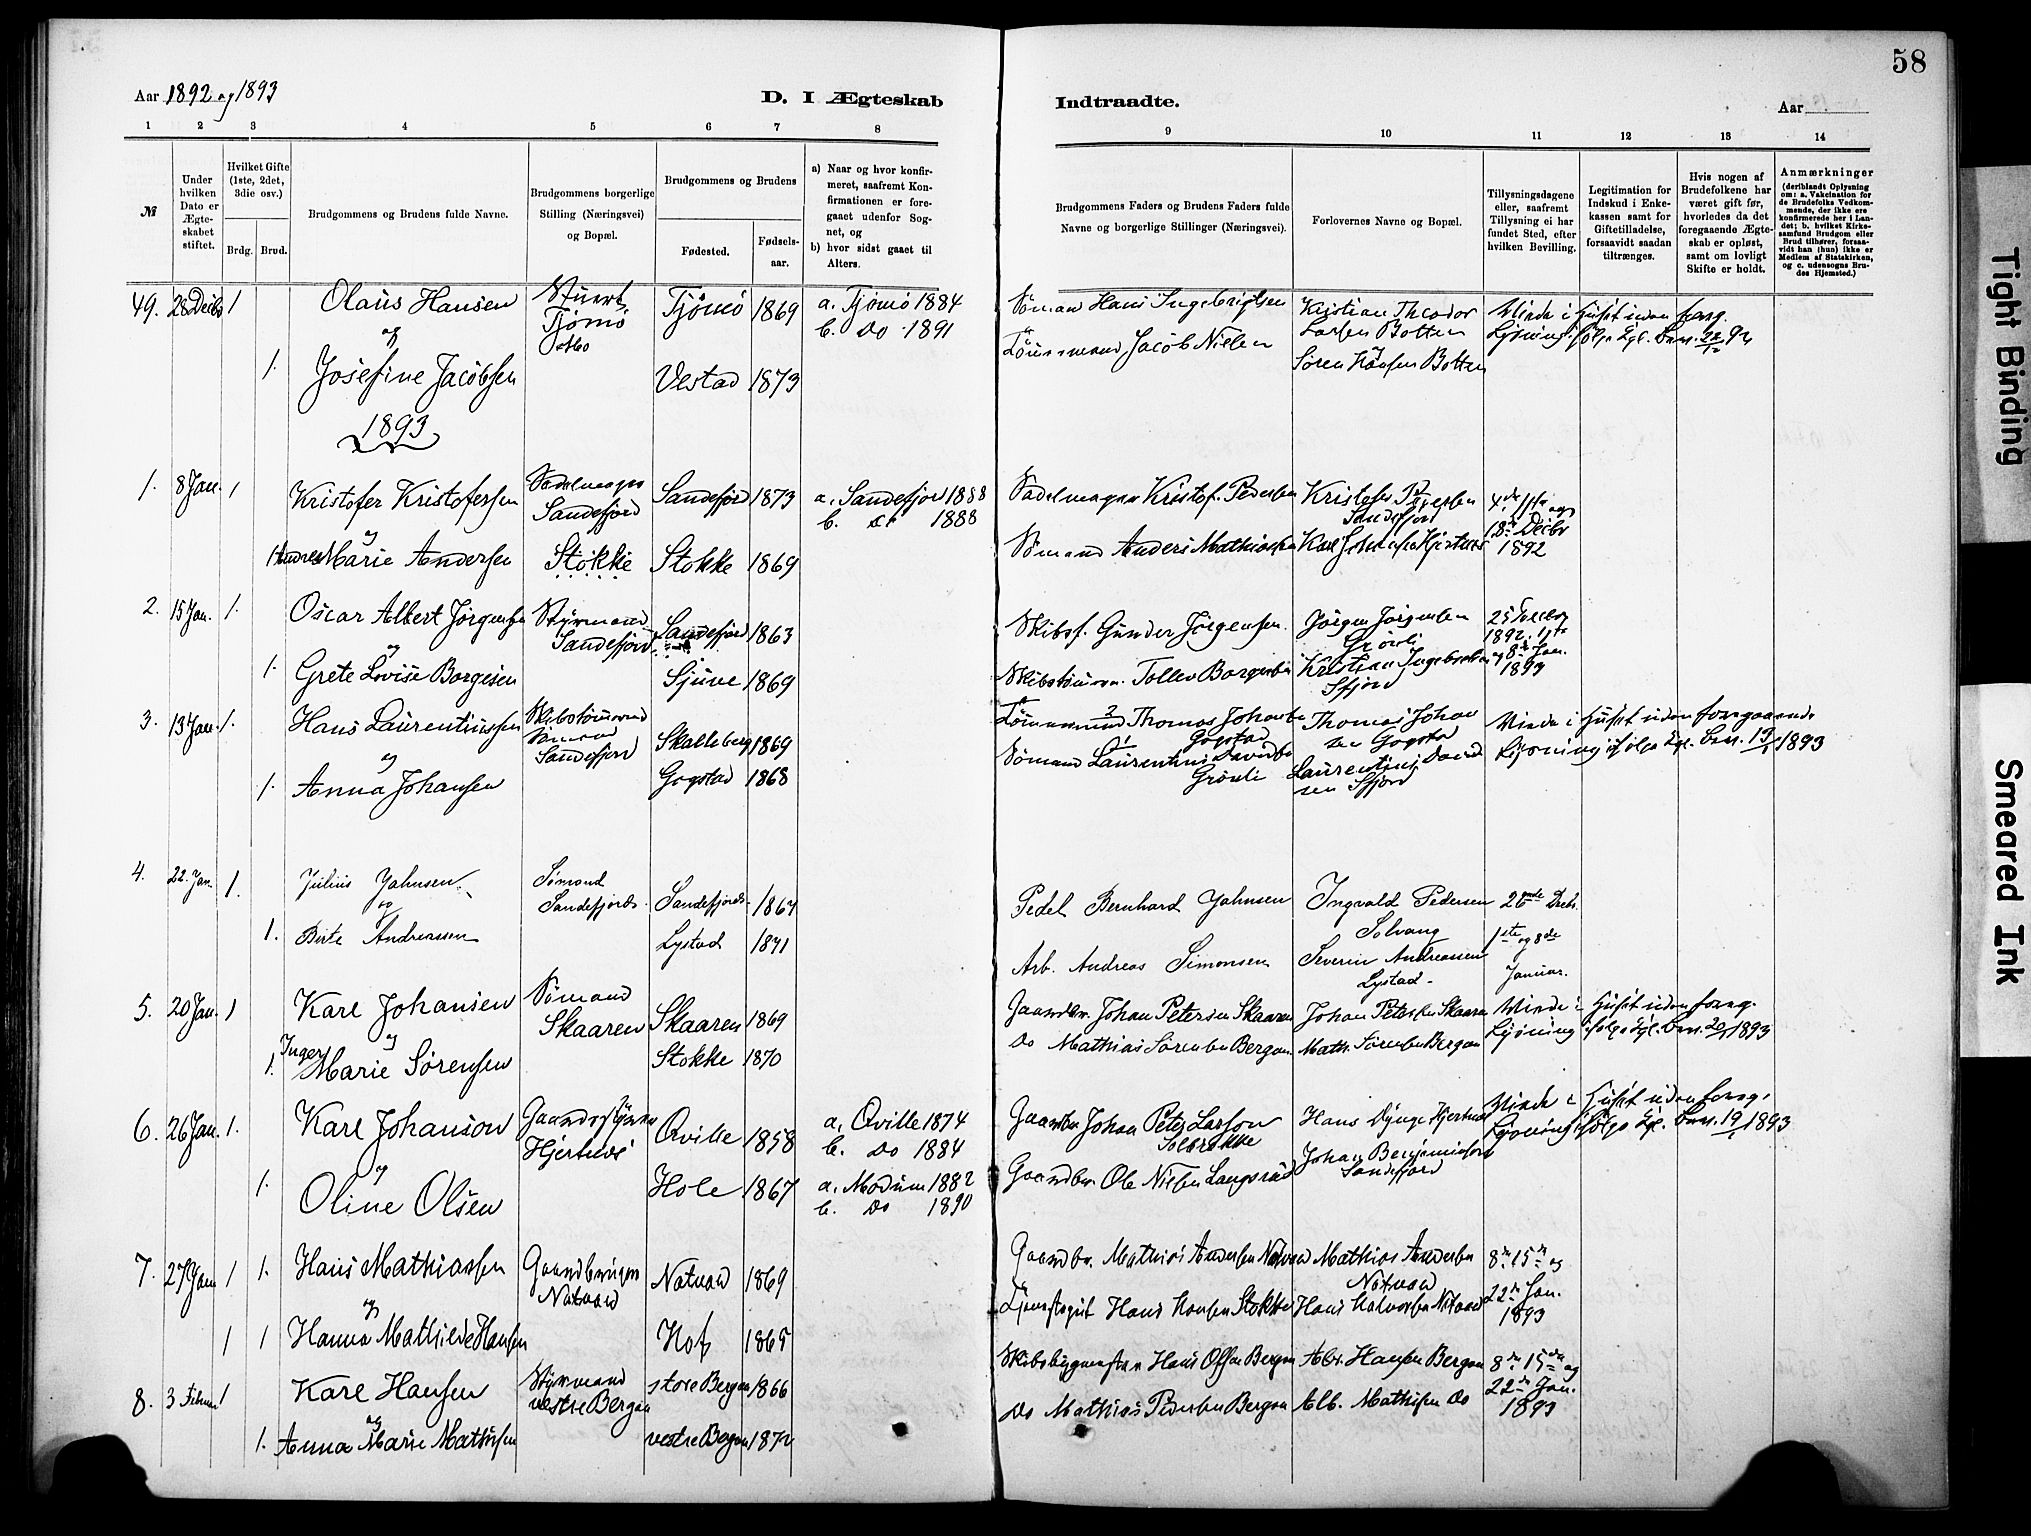 58
Aar 1892 og 1893
D. I Ægteskab Indtraadte.
Aar
1 2 3 4 5 6 7 8 9 10 11 12 13 14
№
Under hvilken Dato er Ægteskabet stiftet.
Hvilket Gifte (1ste, 2det, 3die osv.)
Brdg. Brud.
Brudgommens og Brudens fulde Navne.
Brudgommens borgerlige Stilling (Næringsvei) og Bopæl.
Brudgommens og Brudens
Fødested. Fødselsaar.
a) Naar og hvor konfirmeret, saafremt Konfirmationen er foregaaet udenfor Sognet, og
b) hvor sidst gaaet til Alters.
Brudgommens Faders og Brudens Faders fulde Navne og borgerlige Stillinger (Næringsvei).
Forlovernes Navne og Bopæl.
Tillysningsdagene eller, saafremt Tillysning ei har fundet Sted, efter hvilken Bevilling.
Legitimation for Indskud i Enkekassen samt for Giftetilladelse, forsaavidt saadan tiltrænges.
Hvis nogen af Brudefolkene har været gift før, hvorledes da det foregaaende Ægteskab er opløst, samt om lovligt Skifte er holdt.
Anmærkninger
(deriblandt Oplysning om: a. Vakcination for de Brudefolks Vedkommende, der ikke ere konfirmerede her i Landet; b. hvilket Kirkesamfund Brudgom eller Brud tilhører, forsaavidt han (hun) ikke er Medlem af Statskirken, og c. udensogns Brudes Hjemsted.)
49. 28 Decbr 1 Olaus Hansen Stuert Tjømø Tjømø 1869 a. Tjømø 1884
b. Do 1891
Sømand Hans Ingebrigtsen Kristian Theodor Larsen Botten
og
1. Josefine Jacobsen Vestad 1873
Tømmermand Jacob Nielsen Søren Hansen Botten
1893
1. 8 Jan. 1 Kristofer Kristofersen Sadelmager Sandefjord Sandefjord 1873 a. Sandefjord 1888
b. do 1888
Sadelmager Kristof. Pedersen Kristofer Pedersen Sandefjord
18de Decbr
1892
og
1 Andrea Marie Andersen Stokke Stokke 1869
Sømand Anders Mathiassen Karl Johansen Hjertnes
2. 15 Jan. 1. Oscar Albert Jørgensen Styrmand Sandefjord Sandefjord 1863
Skibsf. Gunder Jørgensen Jørgen Jørgensen Grønli 25 Decbr
1892, 1ste og 8de Jan.
1893
og
1. Grete Lovise Borgesen Sjuve 1869
Skibstømrm. Tollev Borgersen Kristian Ingebretsen Sfjord
3. 13 Jan. 1. Hans Laurentiussen Skibstømmermand Sømand Sandefjord Skalleberg 1869
Tømmermand 2 Thomas Johansen Gogstad Thomas Johansen Gogstad
og
1. Anna Johansen Gogstad 1868
Sømand 1 Laurentius Davidsen Grønli Laurentius Davidsen Sfjord
4. 22. Jan. 1. Julius Jahnsen Sømand Sandefjord Sandefjord 1867
Pedel Bernhard Jahnsen Ingvald Pedersen Solvang
og
1. Birte Andreassen Lystad 1871
Arb. Andreas Simonsen Severin Andreassen Lystad
1ste og 8de Januar.
5. 20 Jan. 1 Karl Johansen Sømand Skaaren Skaaren 1869
Gaardbr. Johan Petersen Skaaren Johan Petersen Skaaren
og
1. Inger Marie Sørensen Stokke 1870
Do Mathias Sørensen Bergan Math. Sørensen Bergan
6. 26 Jan. 1. Karl Johanson Gaardsstyrer Hjertnes Qville 1858 a. Qville 1874
b. Do 1884
Gaardbr. Johan Peter Larson Solbrække Hans Dynge Hjertnes
og
1. Oline Olsen Hole 1867 a. Modum 1882
b. Do 1890
Gaardbr. Ole Nilsen Langerud Johan Benjaminsen Sandefjord
7. 27 Jan 1 1. Hans Mathiassen Gaardbruger Natvad Natvad 1869
Gaardbr. Mathias Andersen Natvad Mathias Andersen Natvad 8de 15de og
22de Jan.
1893
og
1 1 Hanna Mathilde Hansen Hof 1865
Hans Hansen Stokke Hans Halvorsen Natvad
8. 3 Februar 1 Karl Hansen Styrmand vestre Bergan store Bergan 1866
Skibsbygmester Hans Olsen Bergan Abr. Hansen Bergan 8de 15de og
22de Jan.
1893
og
1. Anna Marie Mathisen vestre Bergan 1872
Do Mathias Pedersen Bergan Alb. Mathisen Do
Tight Binding
Smeared Ink